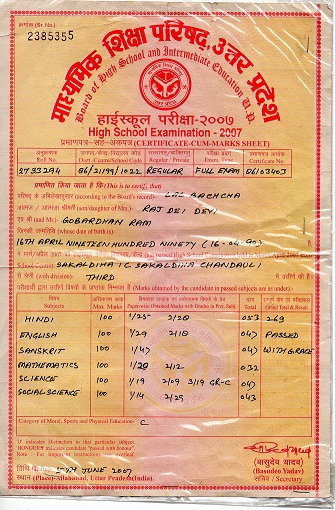 क्रमांक (Sr. No.)
2385355
माध्यमिक शिक्षा परिषद्, उत्तर प्रदेश
Board of High School and Intermediate Education U.P.
हाईस्कूल परीक्षा-२००७
High School Examination - 2007
प्रमाणपत्र-सह-अंकपत्र (CERTIFICATE-CUM-MARKS SHEET)
अनुक्रमांक
Roll No. Distt.-Centre/School Code Regular / Private Exam. Type Certificate No.
2733294 06/21199/1022 REGULAR FULL EXAM 06103403
प्रमाणित किया जाता है कि (This is to certify that)
परिषद् के अभिलेखानुसार (according to the Board's record) LAL BACHCHA
आत्मज / आत्मजा श्रीमती (son/daughter of Mrs.) RAJ DEI DEVI
एवं श्री (and Mr.) GOBARDHAN RAM
जिनकी जन्मतिथि (whose date of birth is)
16TH APRIL NINETEEN HUNDRED NINETY (16-04-90)
SAKALDIHA I C SAKALDIHA CHANDAULI
THIRD
विषय
Subjects
HINDI 100 1/25 2/28 053 269
ENGLISH 100 1/29 2/18 047 PASSED
SANSKRIT 100 1/47 047 WITH GRACE
MATHEMATICS 100 1/20 2/12 032
SCIENCE 100 1/19 2/09 3/19 GR-C 047
SOCIAL SCIENCE 100 1/14 2/29 043
Category of Moral, Sports and Physical Education - C
If indicates Distinction in that particular subject
HONOURS indicates candidate "passed with honour"
Note : For Important Instructions overleaf
(बासुदेव यादव)
(Basudeo Yadav)
सचिव / Secretary
तिथि 5TH JUNE 2007
स्थान (Place)-Allahabad, Uttar Pradesh(India).